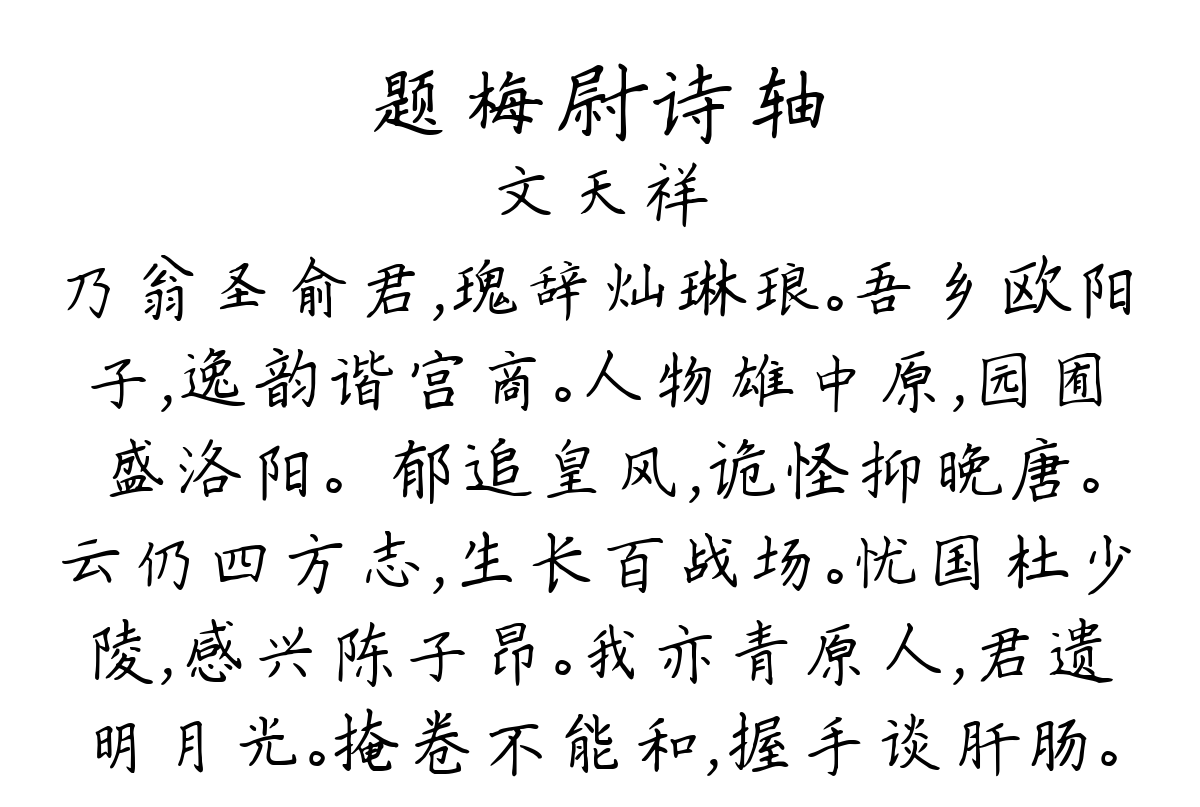 题梅尉诗轴
文天祥
乃翁圣俞君,瑰辞灿琳琅。吾乡欧阳
子,逸韵谐宫商。人物雄中原,园囿
盛洛阳。郁追皇风,诡怪抑晚唐。
云仍四方志,生长百战场。忧国杜少
陵,感兴陈子昂。我亦青原人,君遗
明月光。掩卷不能和,握手谈肝肠。